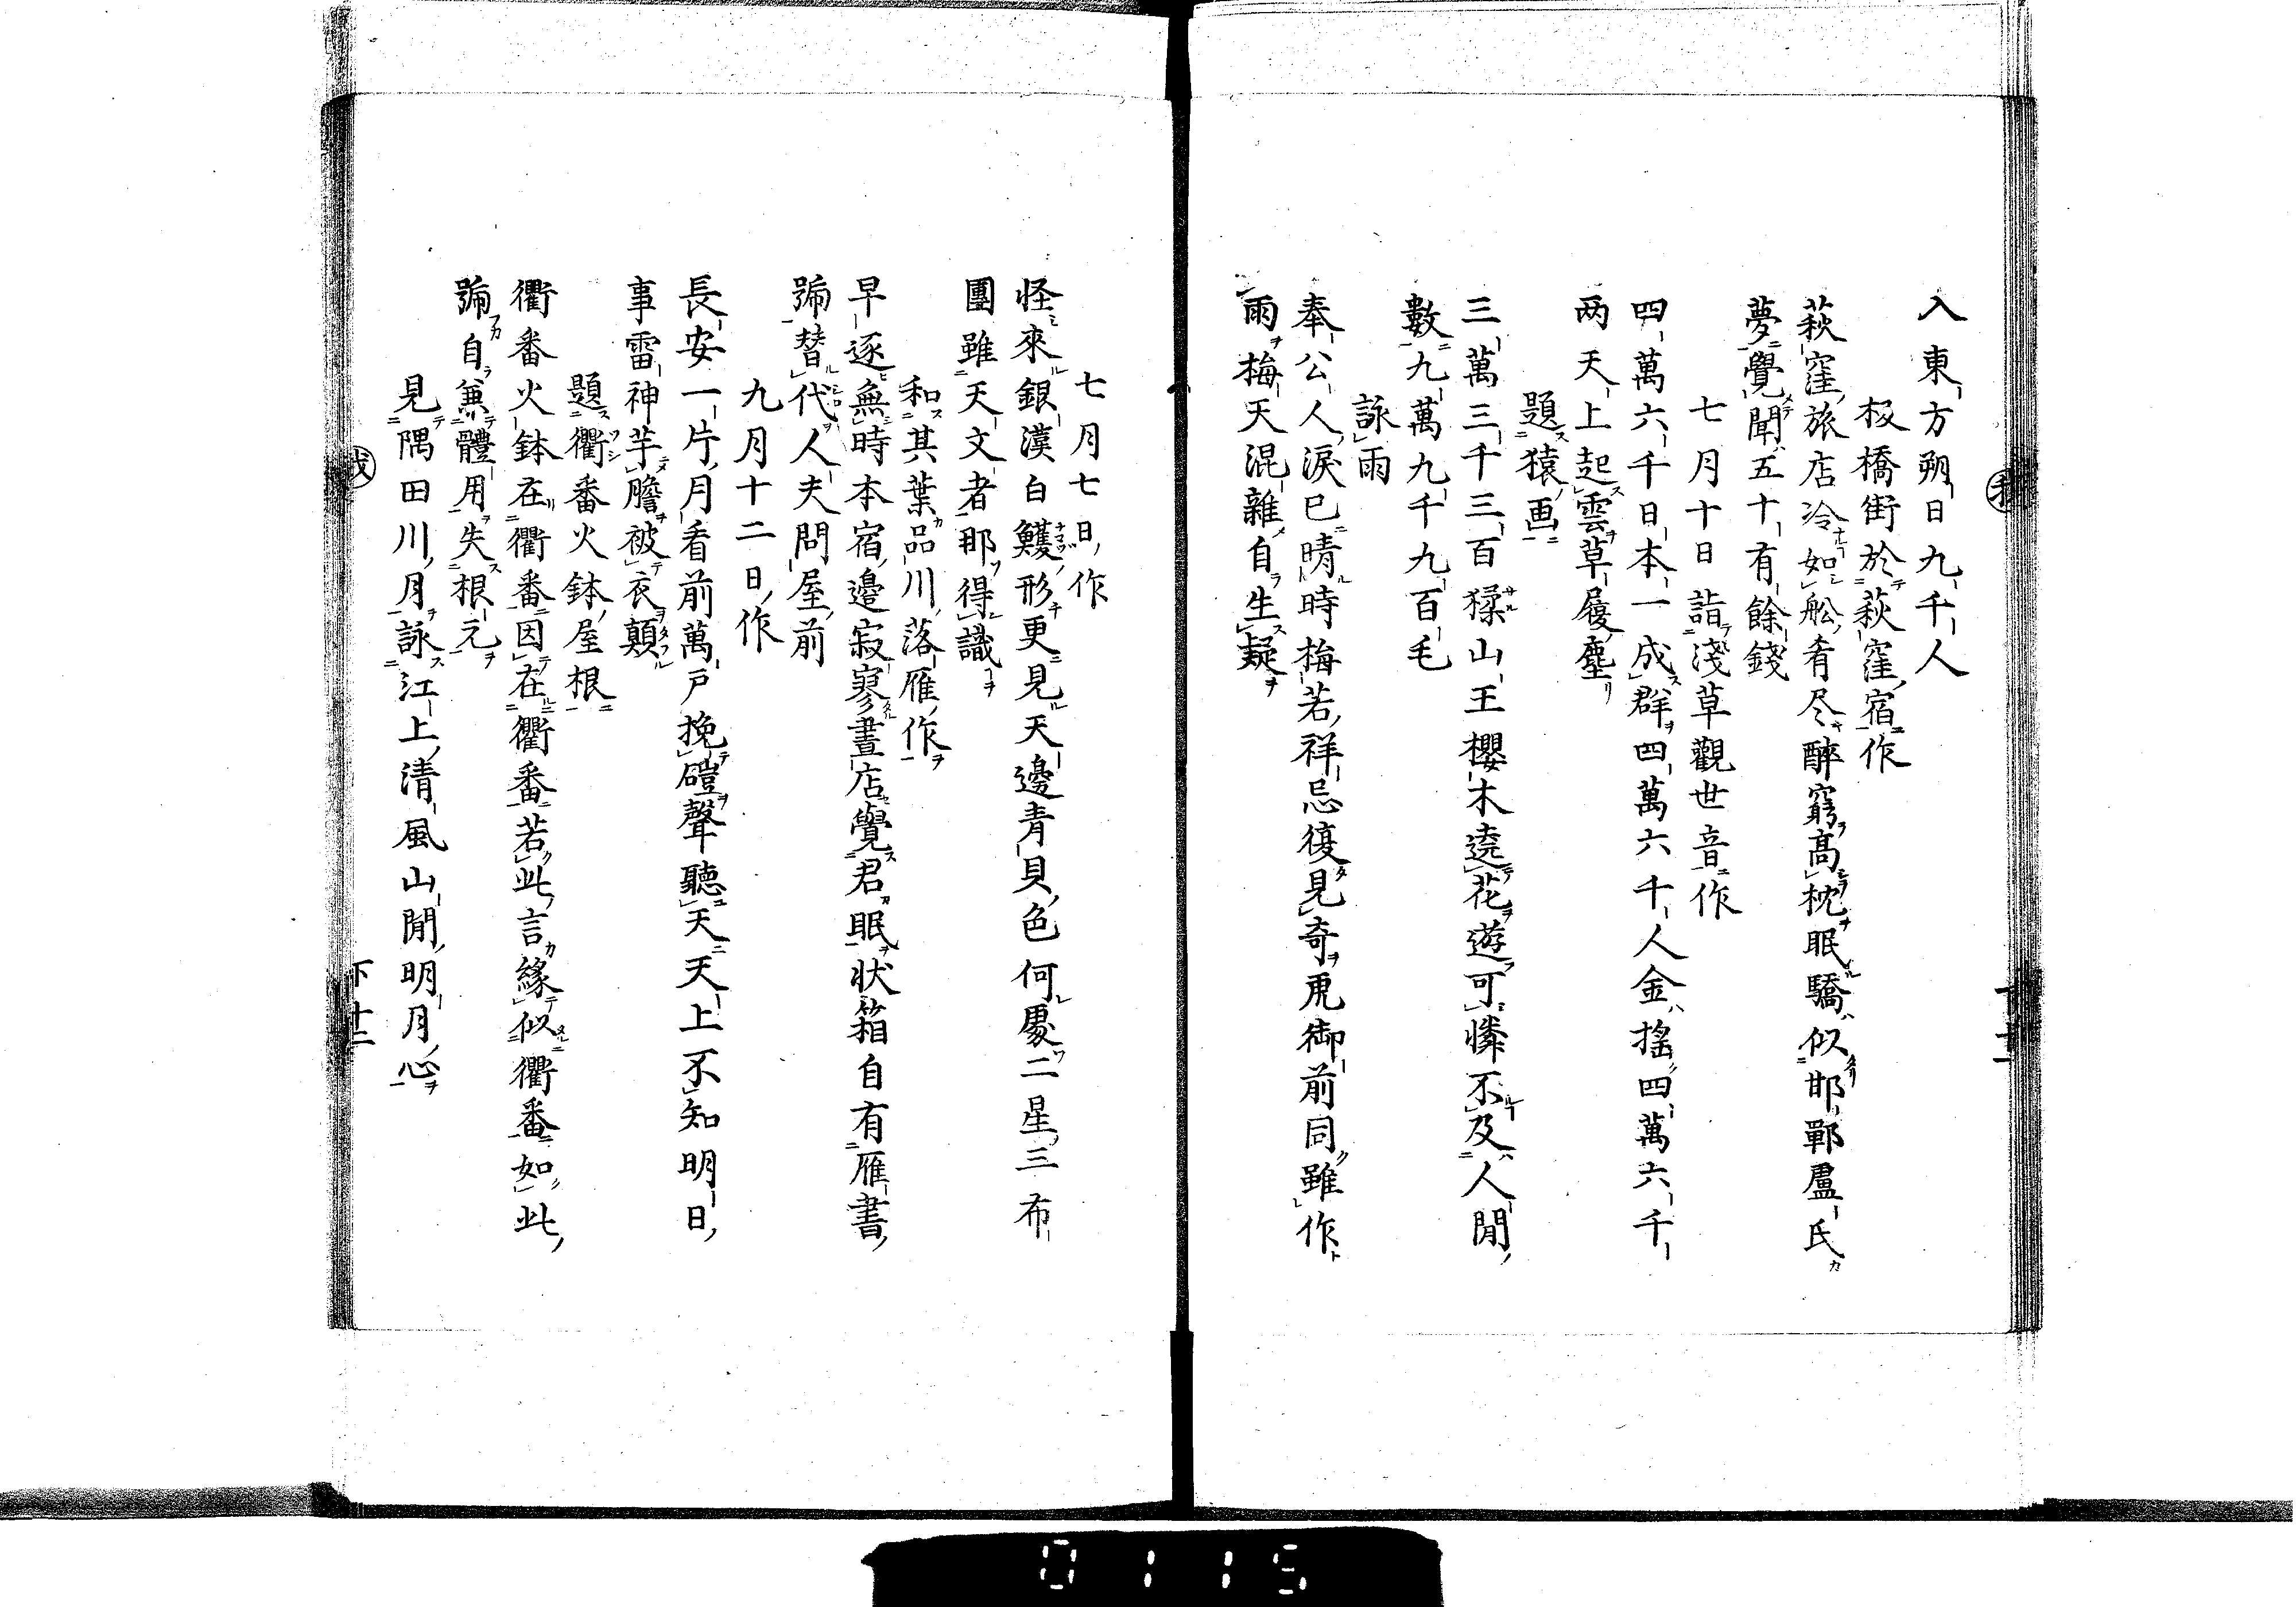 入東方朔日九千人
板橋街於萩窪宿作
萩窪旅店冷如舩肴尽醉窮高枕眠驕似邯鄲盧氏
夢覺聞五十有餘錢
七月十日詣淺草觀世音作
四萬六千日本一成群四萬六千人金搖四萬六千
两天上起雲草履塵
題猿画
三萬三千三百猱山王櫻木遶花遊可憐不及人間
數九萬九千九百毛
詠雨
奉公人淚已晴時梅若祥忌復見奇虎御前同雖作
雨梅天混雜自生疑
七月七日作
怪來銀漢白鱯形更見天邊青貝色何處二星三布
團雖天文者那得識
和其葉品川落雁作
早逐無時本宿邊寂寥晝店覺君眠状箱自有雁書
號替代人夫問屋前
九月十二日作
長安一片月看前萬戶挽磑聲聽天天上不知明日
事雷神芋膽被衣顛
題衢番火鉢屋根
衢番火鉢在衢番因在衢番若此言緣似衢番如此
號自兼體用失根元
見隅田川月詠江上清風山間明月心
下十二
0115